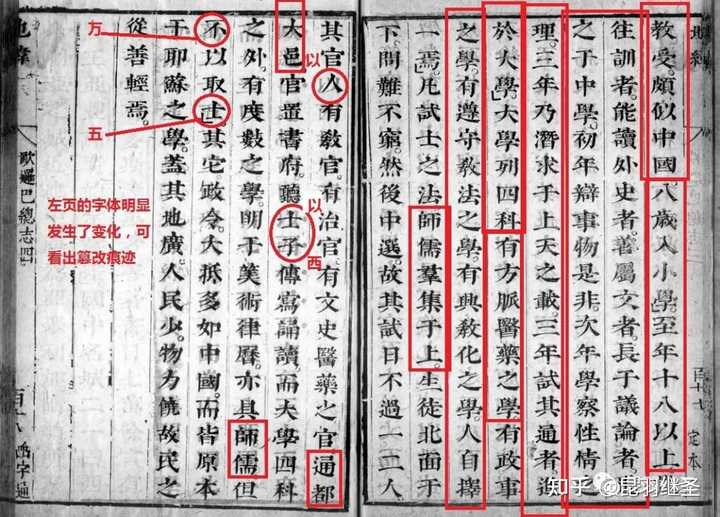 教受。頗似中國八歲入小學。至年十八以上
徃訓者。能讀外史者。善屬文者。長于議論者。
之于中學。初年辯事物是非。次年學察性情之
理。三年乃潛求于上天之載。三年試其通者進
於大學。大學列四科有方脈醫藥之學。有政事
之學。有遵守敎法之學。有興敎化之學。人自擇
一焉。凡試士之法。師儒羣集于上。生徒北面于
下。問難不窮。然後中選。故其試日不過一二人。
定本
其官人有敎官。有治官有文史醫藥之官。通都
大邑官置書府。聽士子傳寫誦讀。而大學四科
之外。有度數之學。明于筭術律曆。亦具師儒但
不以取士。其它政令。大抵多如中國。而皆原本
于耶穌之學。蓋其地廣。人民少。物力饒。故民之
從善輕焉。
歐邏巴總志四
百十八
方
五
以
以
西
左页的字体明显
发生了变化，可
看出篡改痕迹
知乎 @昆羽继圣